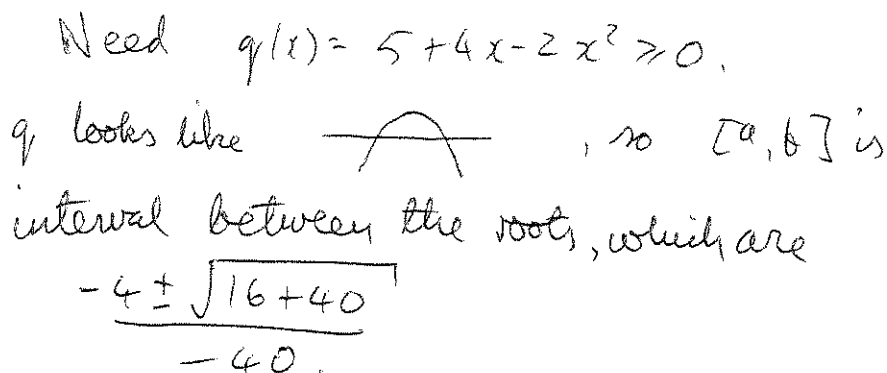 Need q(x) = 5 + 4x - 2x² ≥ 0.
q looks like , so [a, b] is
interval between the roots, which are
-4 ± √(16 + 40)
-40.